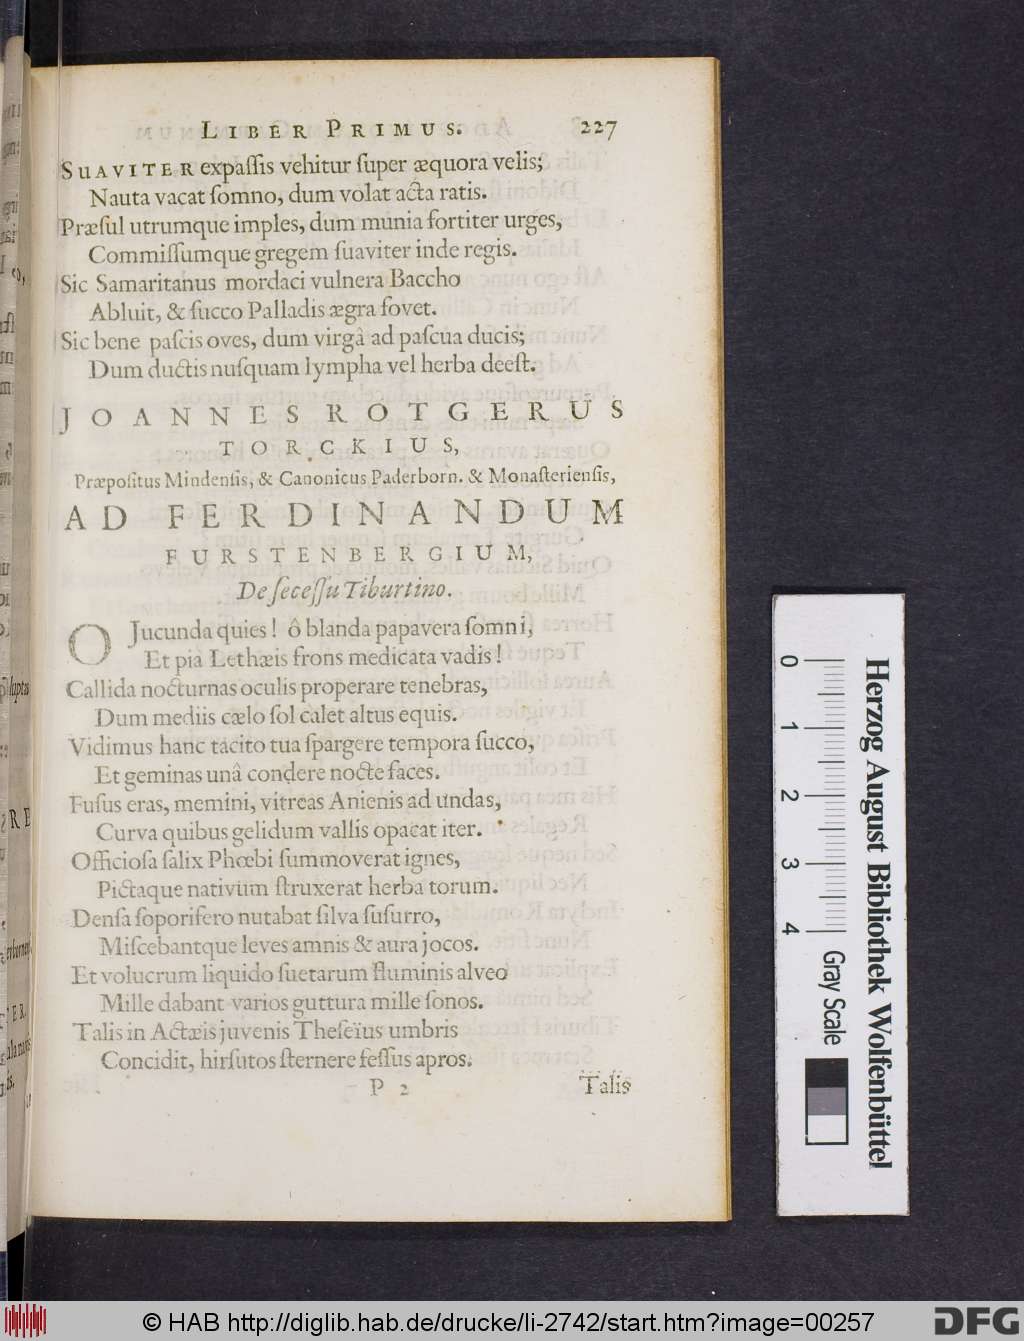 LIBER PRIMUS. 227
SUAVITER expaſſis vehitur ſuper æquora velis;
Nauta vacat ſomno, dum volat acta ratis.
Præſul utrumque imples, dum munia fortiter urges,
Commiſſumque gregem ſuaviter inde regis.
Sic Samaritanus mordaci vulnera Baccho
Abluit, & ſucco Palladis ægra fovet.
Sic bene paſcis oves, dum virgâ ad paſcua ducis;
Dum ductis nuſquam lympha vel herba deeſt.
JOANNES ROTGERUS
TORCKIUS,
Præpoſitus Mindenſis, & Canonicus Paderborn. & Monaſterienſis,
AD FERDINANDUM
FURSTENBERGIUM,
De ſeceſſu Tiburtino.
O Jucunda quies! ô blanda papavera ſomni,
Et pia Lethæis frons medicata vadis!
Callida nocturnas oculis properare tenebras,
Dum mediis cælo ſol calet altus equis.
Vidimus hanc tacito tua ſpargere tempora ſucco,
Et geminas unâ condere nocte faces.
Fuſus eras, memini, vitreas Anienis ad undas,
Curva quibus gelidum vallis opacat iter.
Officioſa ſalix Phœbi ſummoverat ignes,
Pictaque nativum ſtruxerat herba torum.
Denſa ſoporifero nutabat ſilva ſuſurro,
Miſcebantque leves amnis & aura jocos.
Et volucrum liquido ſuetarum fluminis alveo
Mille dabant varios guttura mille ſonos.
Talis in Actæis juvenis Theſeïus umbris
Concidit, hirſutos ſternere feſſus apros.
P 2 Talis
0 1 2 3 4
Gray Scale
Herzog August Bibliothek Wolfenbüttel
© HAB http://diglib.hab.de/drucke/li-2742/start.htm?image=00257
DFG